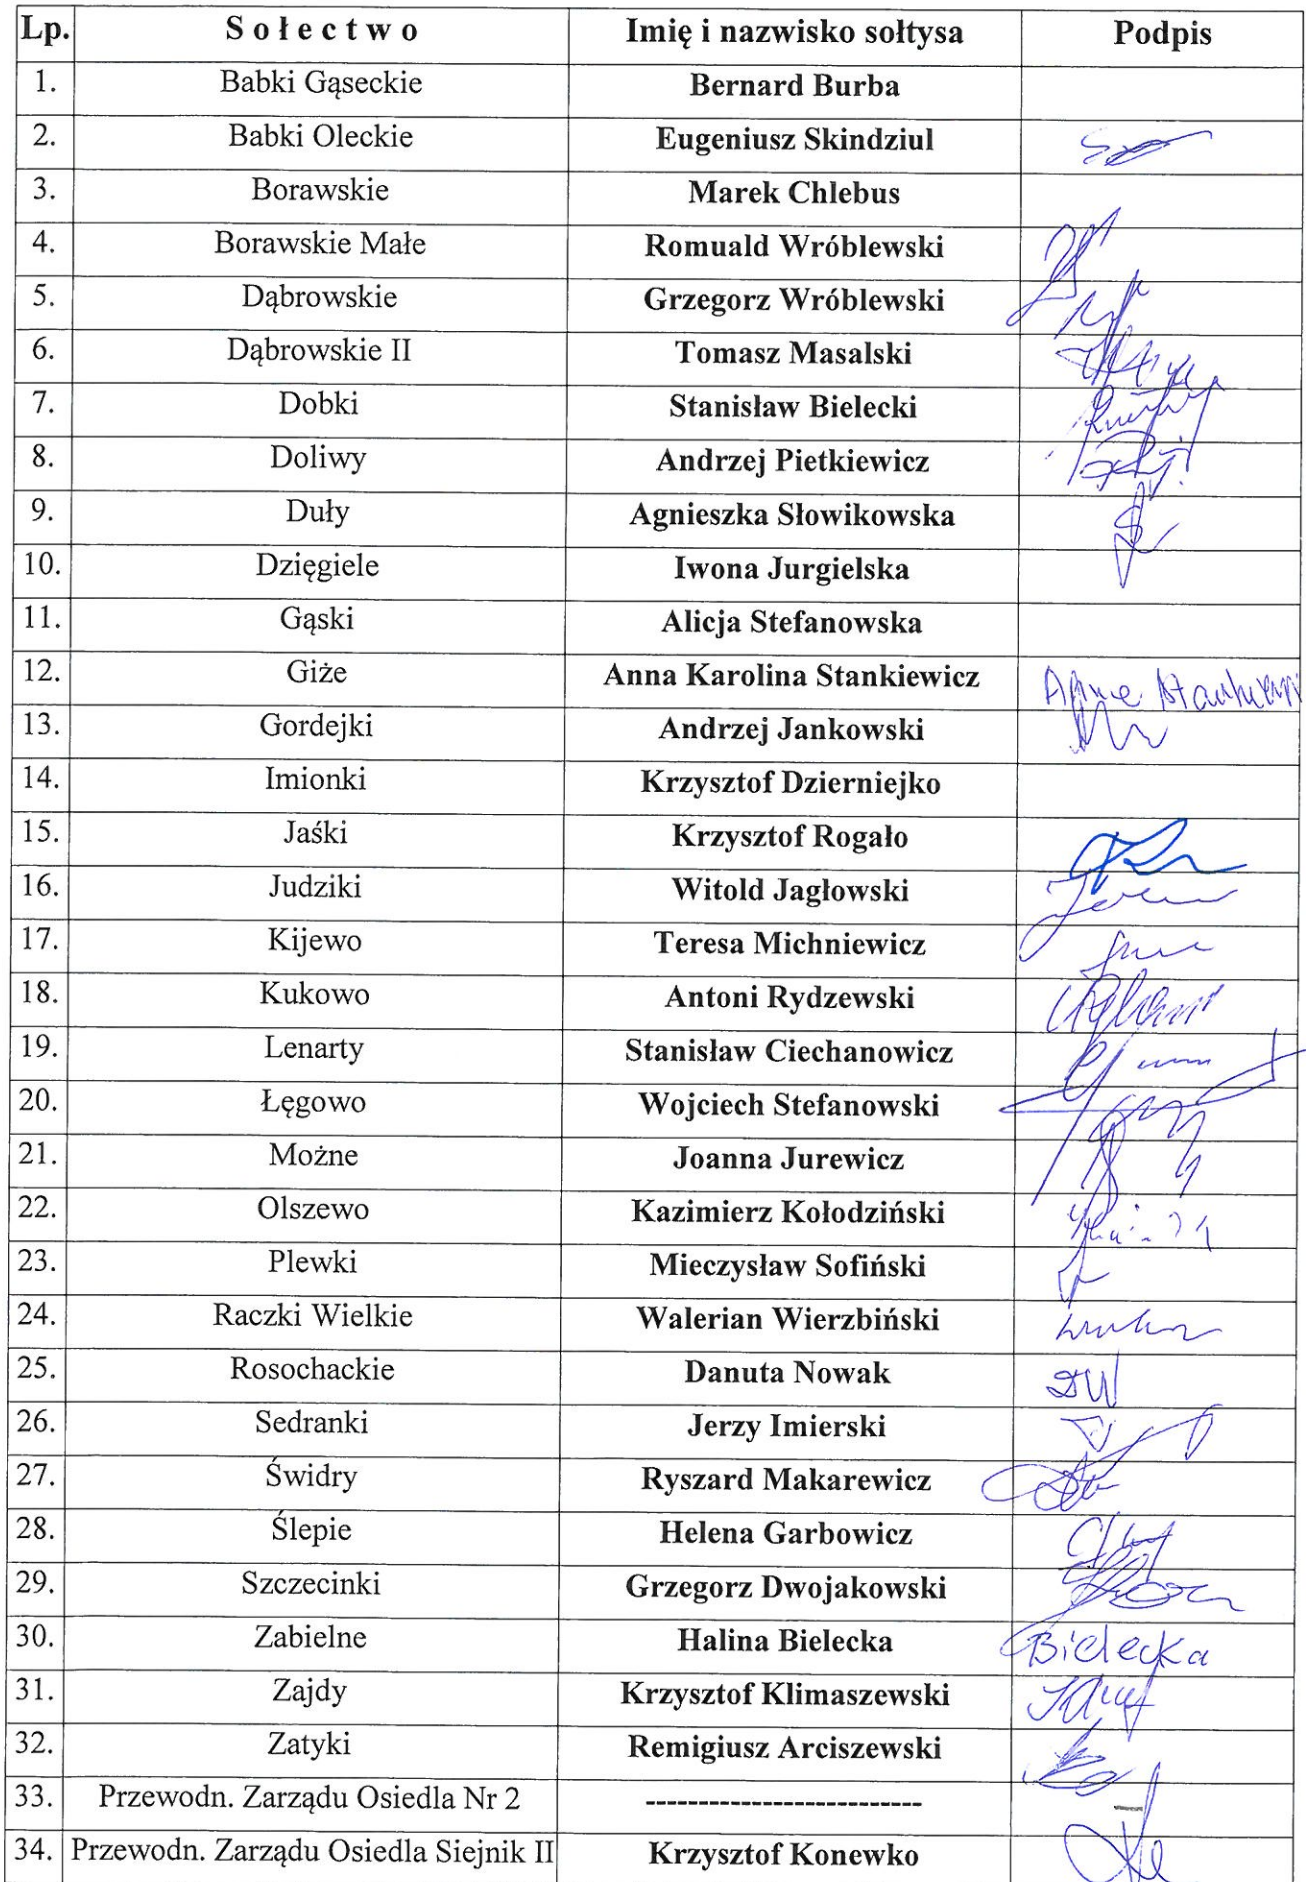 Lp. Sołectwo Imię i nazwisko sołtysa Podpis
1. Babki Gąseckie Bernard Burba
2. Babki Oleckie Eugeniusz Skindziul
3. Borawskie Marek Chlebus
4. Borawskie Małe Romuald Wróblewski
5. Dąbrowskie Grzegorz Wróblewski
6. Dąbrowskie II Tomasz Masalski
7. Dobki Stanisław Bielecki
8. Doliwy Andrzej Pietkiewicz
9. Duły Agnieszka Słowikowska
10. Dzięgiele Iwona Jurgielska
11. Gąski Alicja Stefanowska
12. Giże Anna Karolina Stankiewicz
13. Gordejki Andrzej Jankowski
14. Imionki Krzysztof Dzierniejko
15. Jaśki Krzysztof Rogało
16. Judziki Witold Jagłowski
17. Kijewo Teresa Michniewicz
18. Kukowo Antoni Rydzewski
19. Lenarty Stanisław Ciechanowicz
20. Łęgowo Wojciech Stefanowski
21. Możne Joanna Jurewicz
22. Olszewo Kazimierz Kołodziński
23. Plewki Mieczysław Sofiński
24. Raczki Wielkie Walerian Wierzbiński
25. Rosochackie Danuta Nowak
26. Sedranki Jerzy Imierski
27. Świdry Ryszard Makarewicz
28. Ślepie Helena Garbowicz
29. Szczecinki Grzegorz Dwojakowski
30. Zabielne Halina Bielecka Bielecka
31. Zajdy Krzysztof Klimaszewski
32. Zatyki Remigiusz Arciszewski
33. Przewodn. Zarządu Osiedla Nr 2 -------------------------- —
34. Przewodn. Zarządu Osiedla Siejnik II Krzysztof Konewko